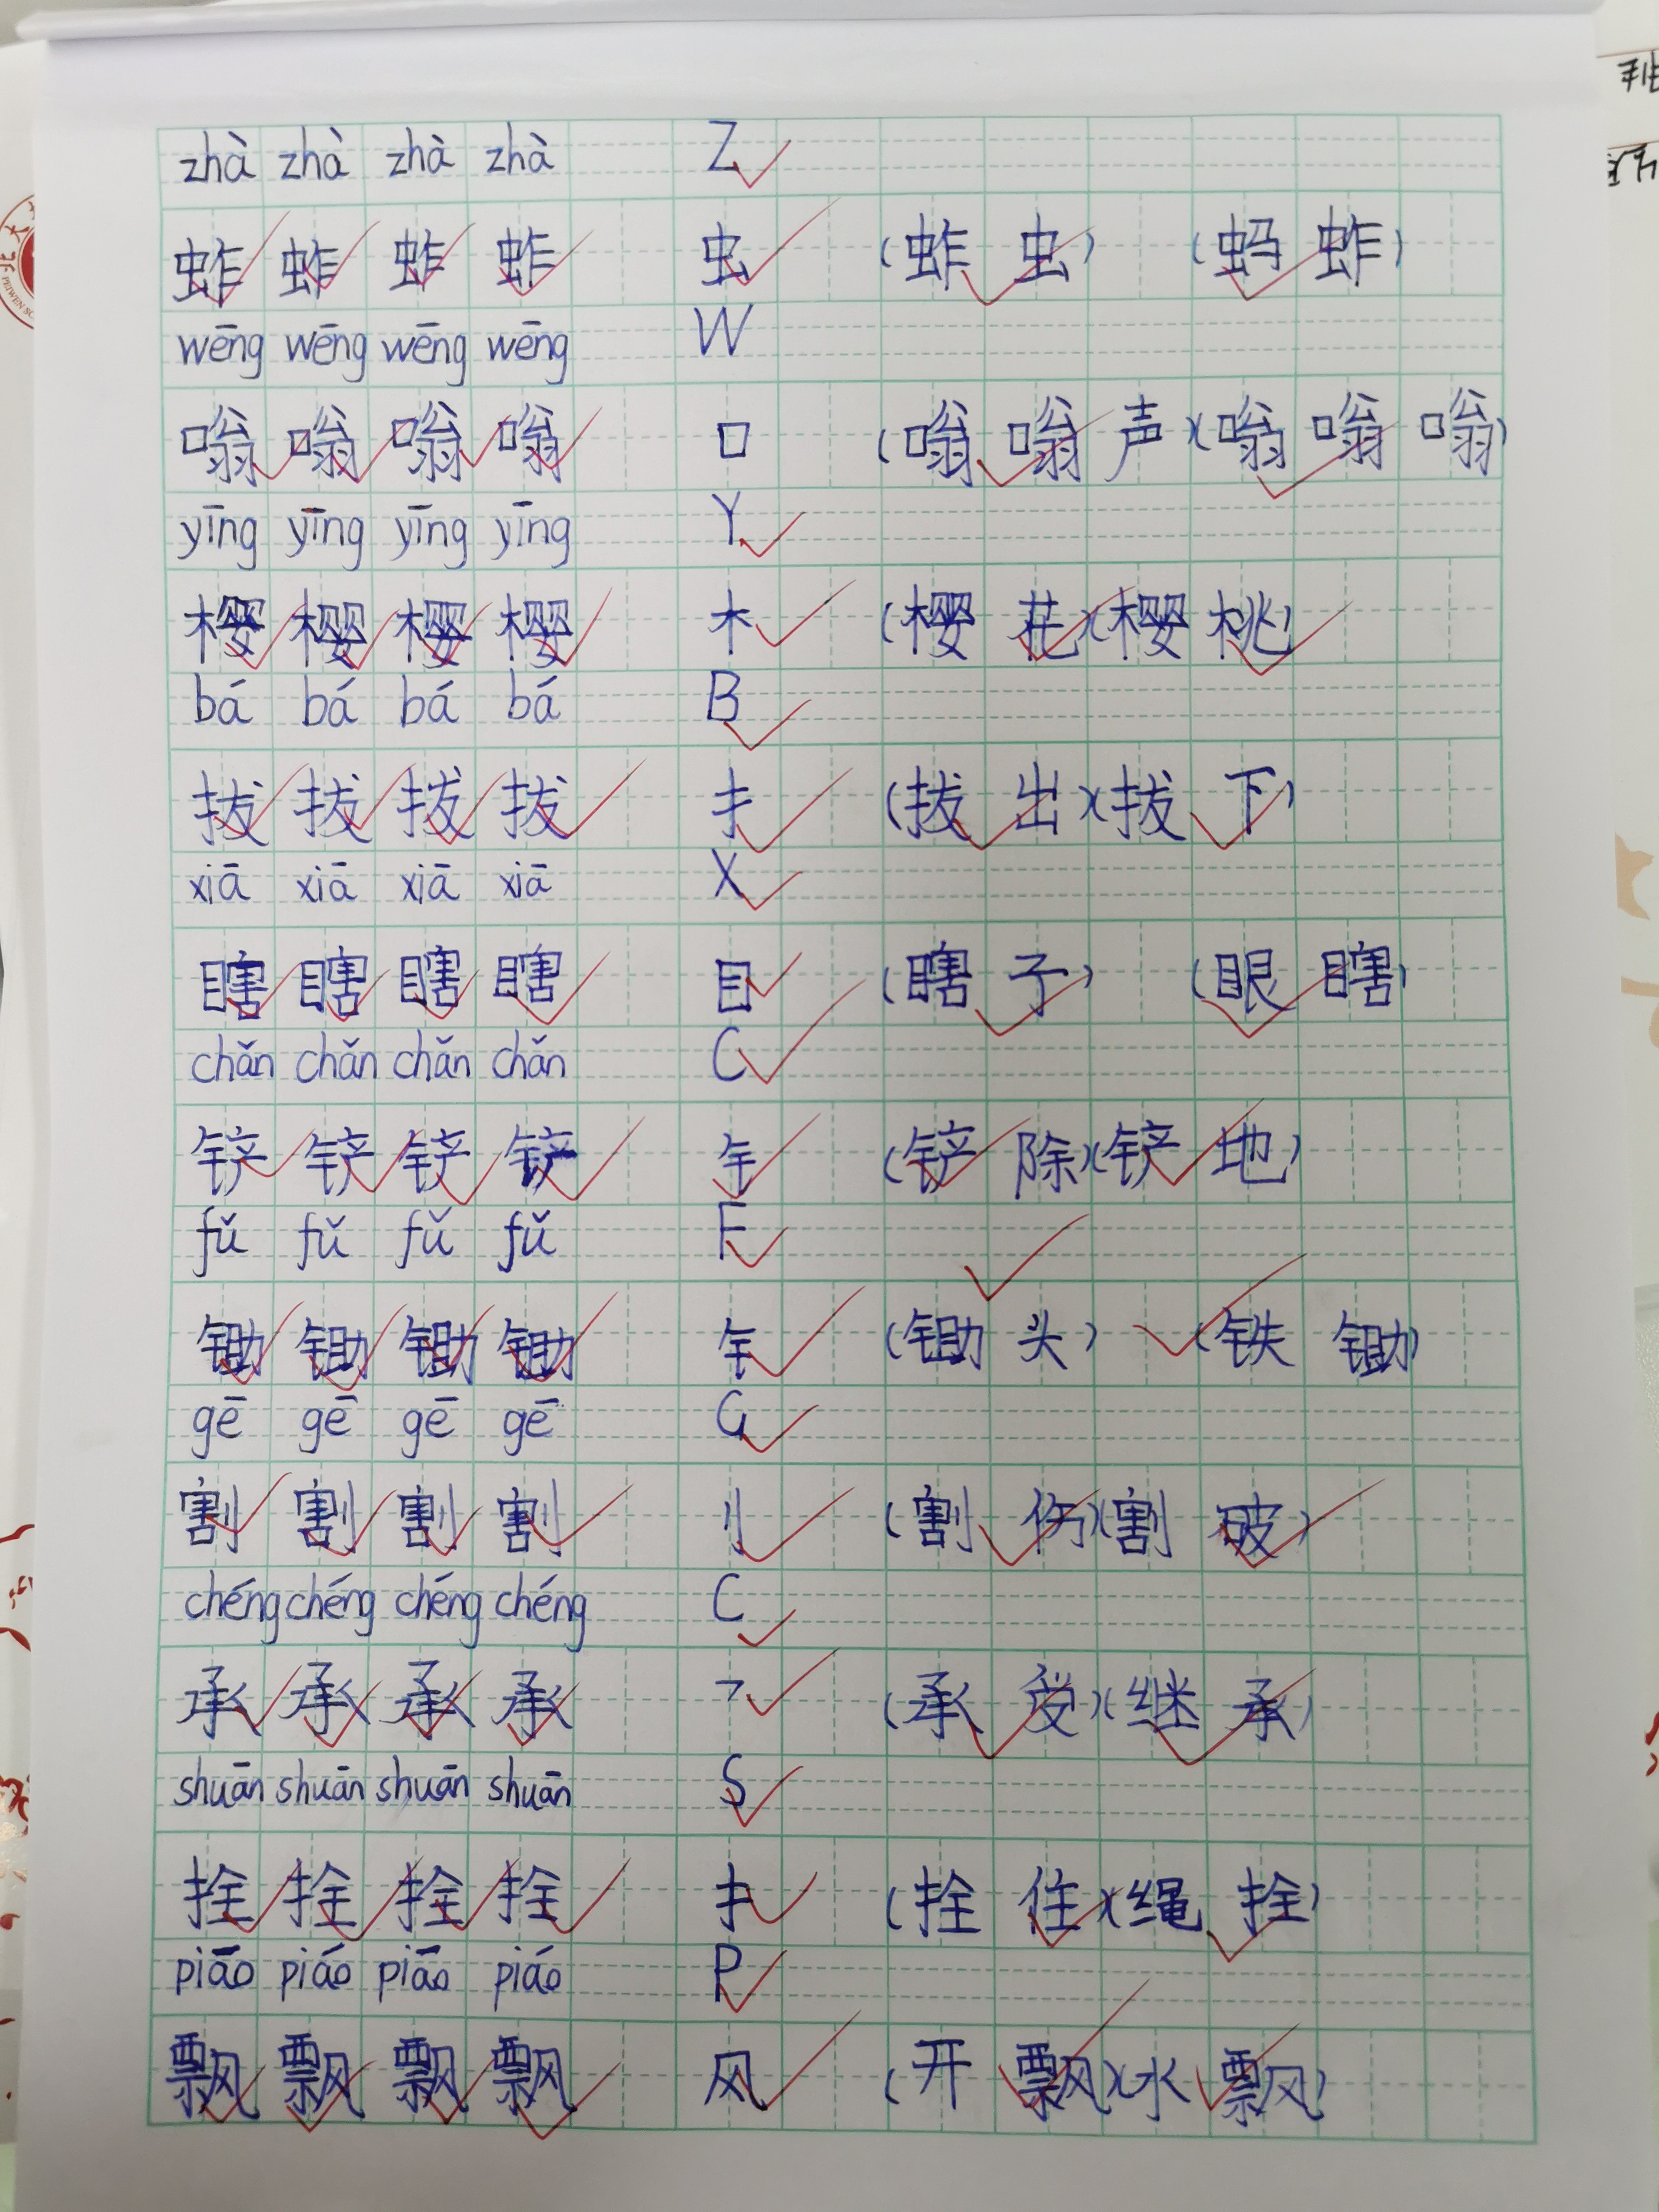 zhà zhà zhà zhà Z
蚱 蚱 蚱 蚱 虫 (蚱虫) (蚂蚱)
wēng wēng wēng wēng W
嗡 嗡 嗡 嗡 口 (嗡嗡声)(嗡嗡嗡)
yīng yīng yīng yīng Y
樱 樱 樱 樱 木 (樱花)(樱桃)
bá bá bá bá B
拔 拔 拔 拔 扌 (拔出)(拔下)
xiā xiā xiā xiā X
瞎 瞎 瞎 瞎 目 (瞎子) (眼瞎)
chǎn chǎn chǎn chǎn C
铲 铲 铲 铲 钅 (铲除)(铲地)
fǔ fǔ fǔ fǔ F
锄 锄 锄 锄 钅 (锄头) (铁锄)
gē gē gē gē G
割 割 割 割 刂 (割伤)(割破)
chéng chéng chéng chéng C
承 承 承 承 乛 (承受)(继承)
shuān shuān shuān shuān S
拴 拴 拴 拴 扌 (拴住)(绳拴)
piāo piáo piāo piáo P
飘 飘 飘 飘 风 (开飘)(水飘)